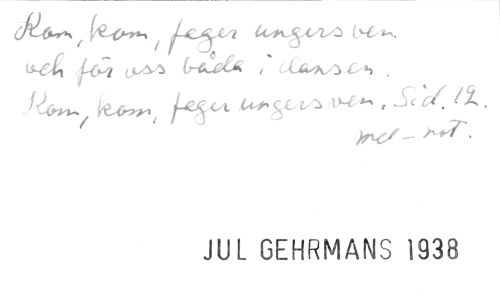 Kom, kom, fager ungersven
och för oss båda i dansen.
Kom, kom, fager ungersven. Sid. 12.
mel-not.
JUL GEHRMANS 1938